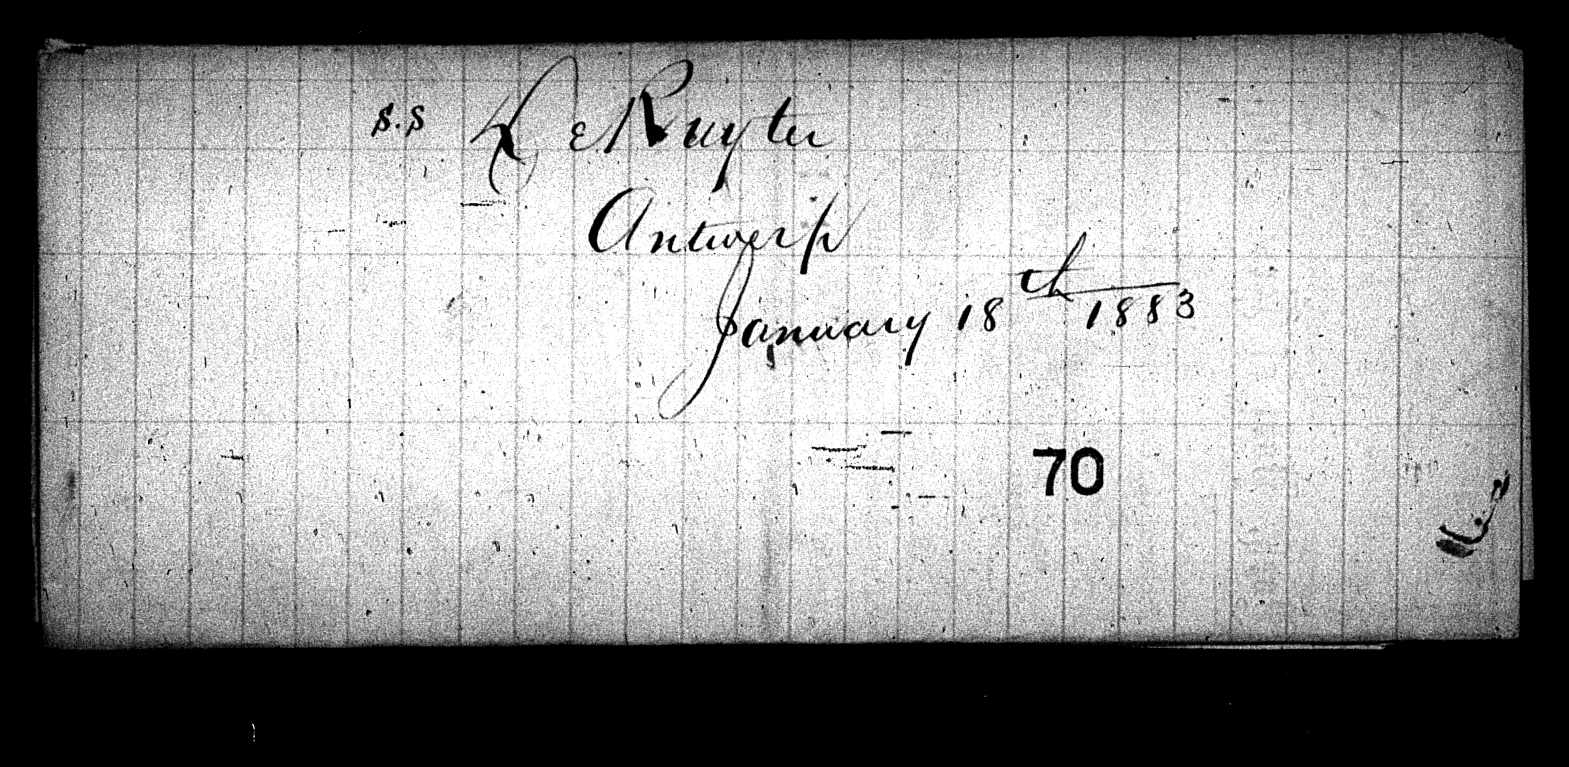 S.S De Ruyter
Antwerp
January 18th 1883
70